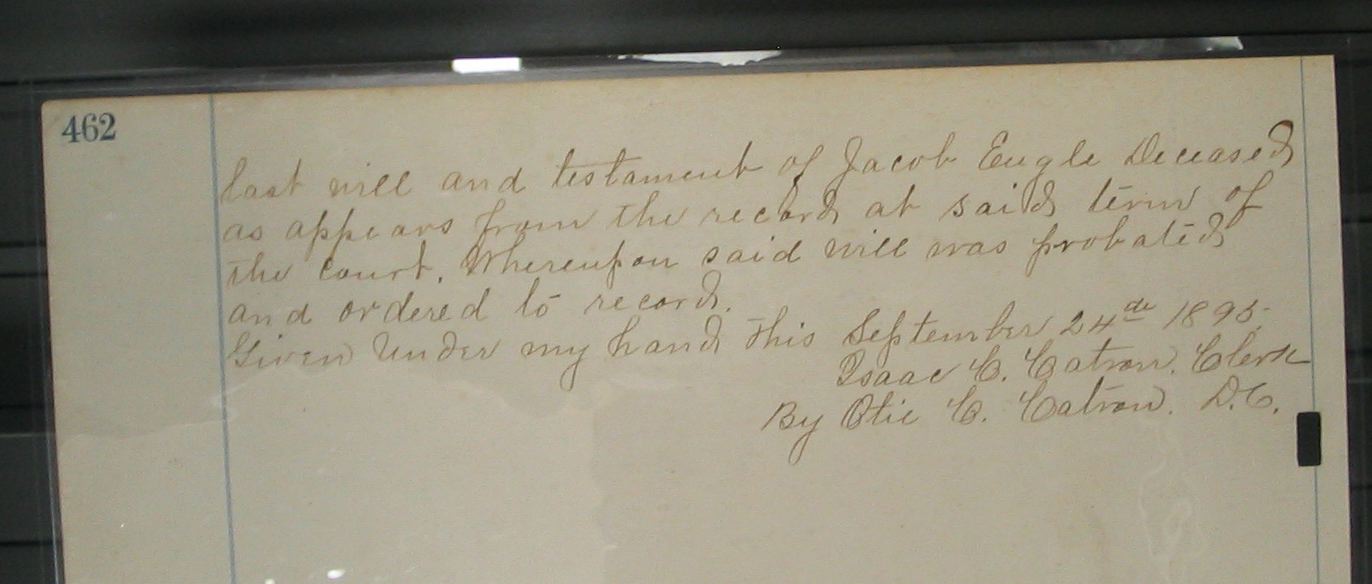 462
last will and testament of Jacob Eugle Deceased
as appears from the record at said term of
the court. Whereupon said will was probated
and ordered to record.
Given under my hand this September 24th 1895.
Isaac C. Catron. Clerk
By Otie C. Catron. D.C.